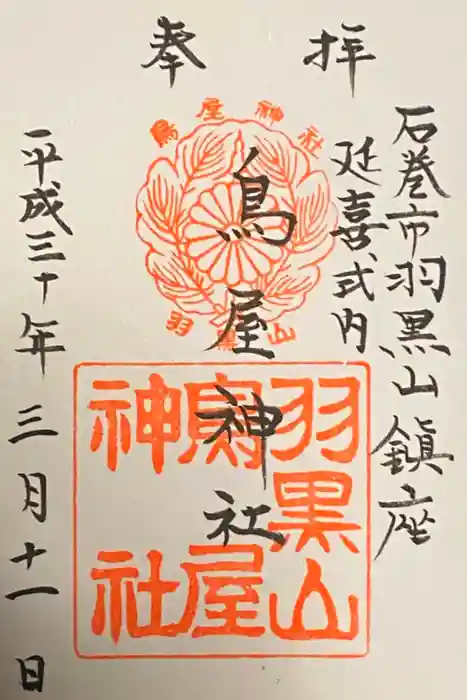 奉拝
石巻市羽黒山鎮座
延喜式内
鳥屋神社
平成三十年三月十一日
鳥屋神社
羽黒山
羽黒山
鳥屋
神社